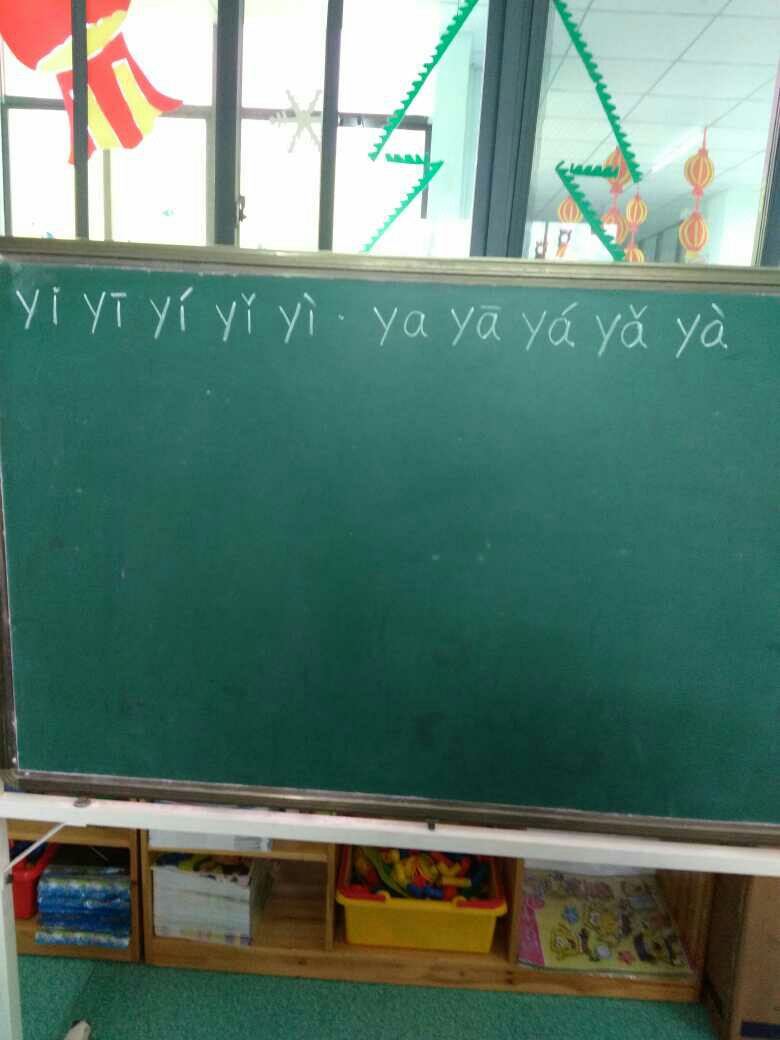 yi yī yí yǐ yì · ya yā yá yǎ yà